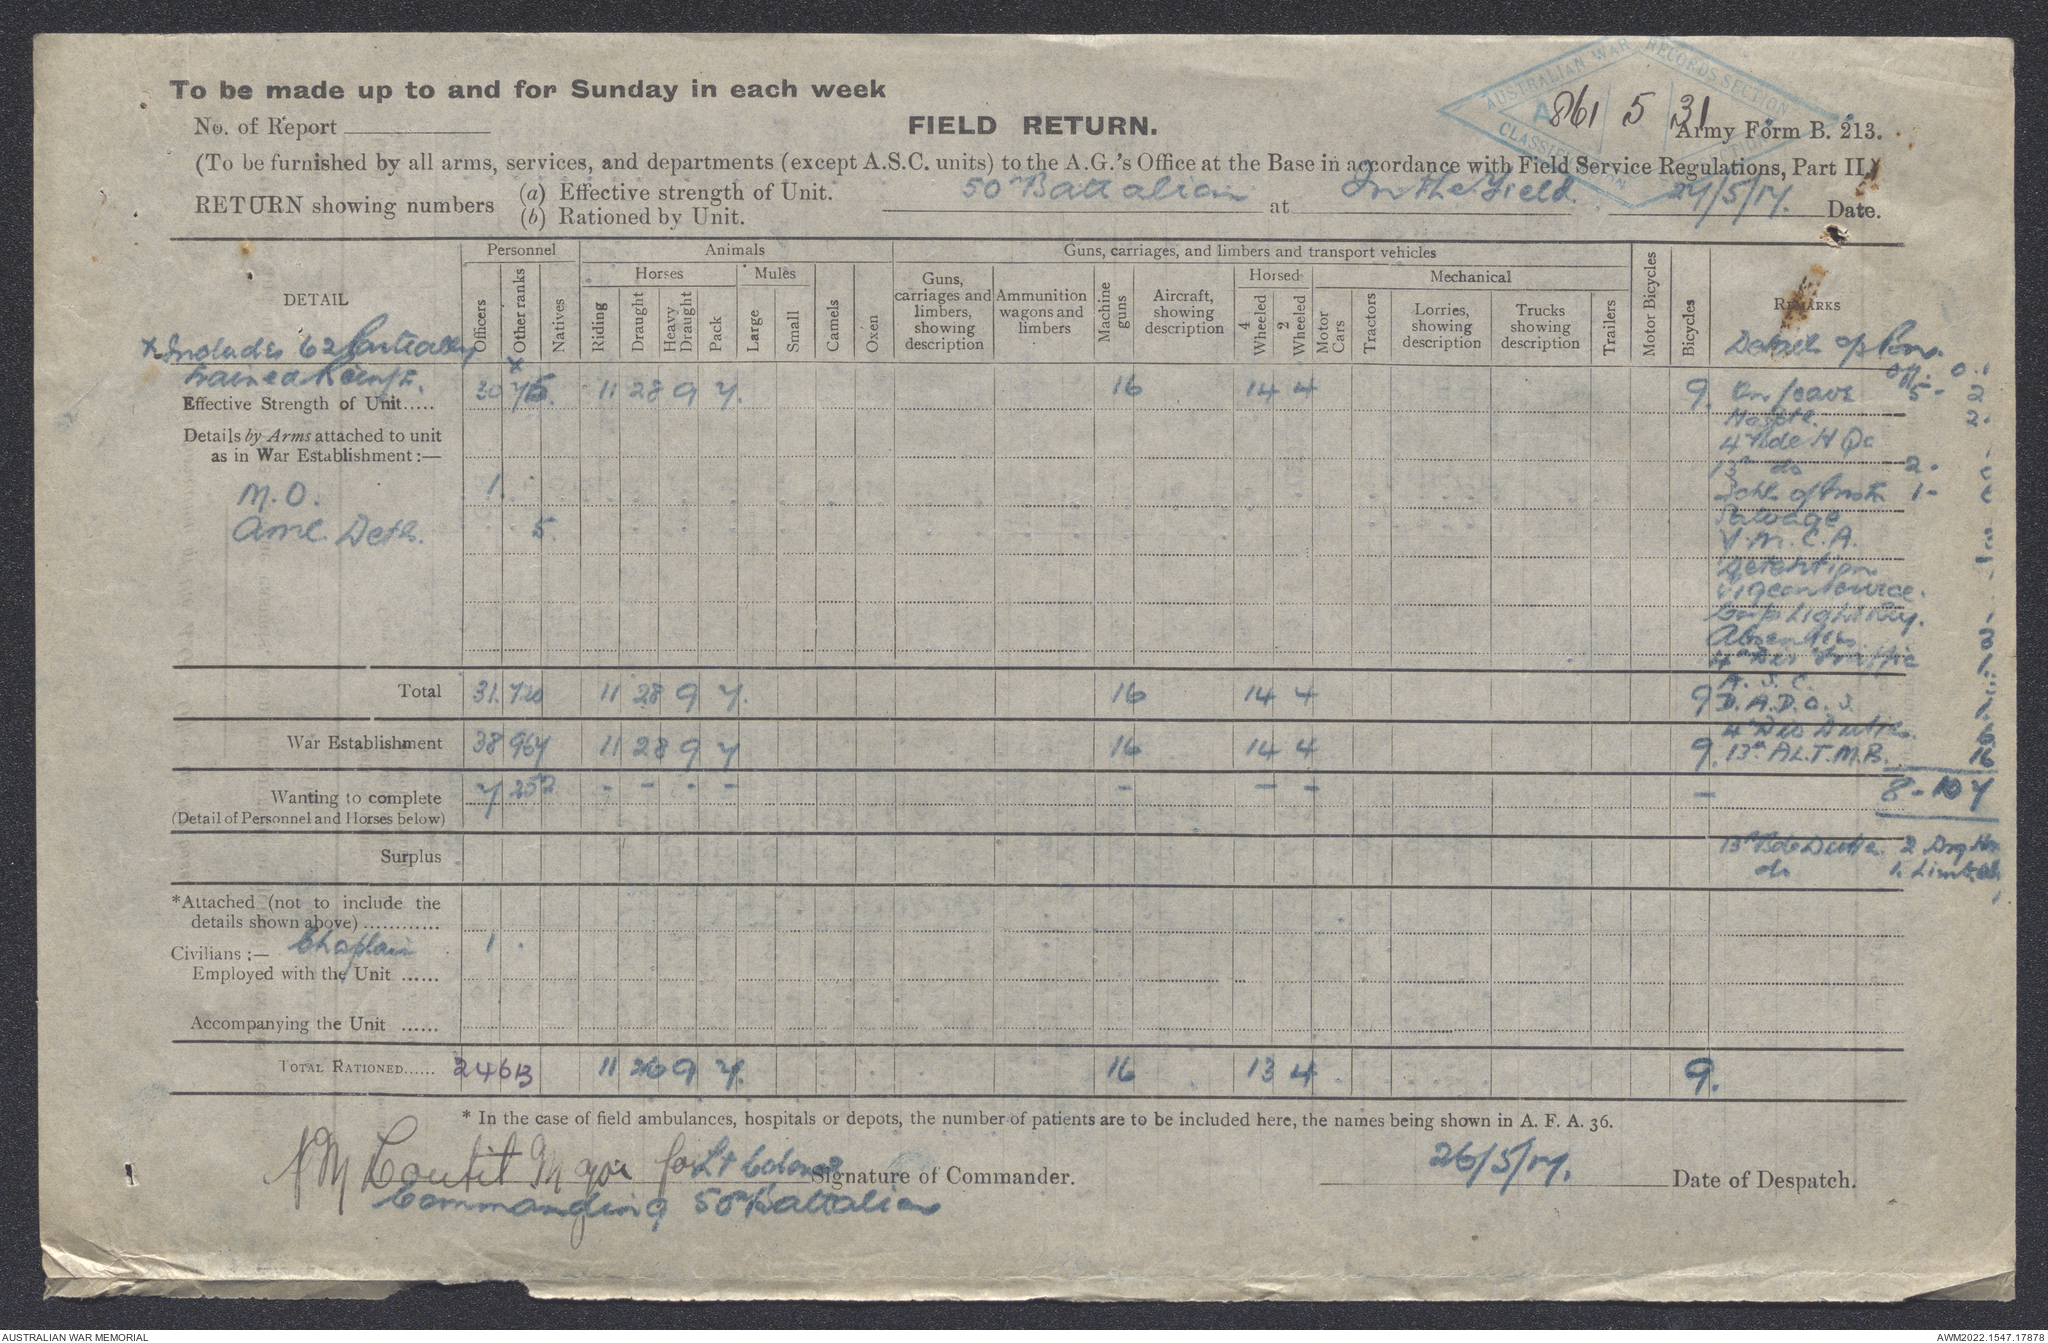 AUSTRALIAN WAR RECORDS SECTION
CLASSIFICATION
861 5 31
To be made up to and for Sunday in each week
No. of Report
FIELD RETURN.
Army Form B. 213.
(To be furnished by all arms, services, and departments (except A.S.C. units) to the A.G.'s Office at the Base in accordance with Field Service Regulations, Part II.)
RETURN showing numbers
(a) Effective strength of Unit.
(b) Rationed by Unit.
50th Battalion at In the Field. 27/5/17. Date.
DETAIL
Personnel
Animals
Guns, carriages, and limbers and transport vehicles
Horses
Mules
Horsed
Mechanical
Officers
Other ranks
Natives
Riding
Draught
Heavy Draught
Pack
Large
Small
Camels
Oxen
Guns, carriages and limbers, showing description
Ammunition wagons and limbers
Machine guns
Aircraft, showing description
4 Wheeled
2 Wheeled
Motor Cars
Tractors
Lorries, showing description
Trucks showing description
Trailers
Motor Bicycles
Bicycles
REMARKS
x Includes 62 partially
trained Reinfts.
Effective Strength of Unit..... 30 715 11 28 9 7. 16 14 4 9.
Details by Arms attached to unit
as in War Establishment :—
M.O. 1.
Detls. 5
Total 31. 720 11 28 9 7. 16 14 4 9
War Establishment 38 967 11 28 9 7 16 14 4 9.
Wanting to complete 7 252 - - - - - - - -
(Detail of Personnel and Horses below)
Surplus
*Attached (not to include the
details shown above)............
Civilians :— Chaplain 1.
Employed with the Unit ......
Accompanying the Unit ......
TOTAL RATIONED...... 24 613 11 26 9 7. 16 13 4 9.
On leave 5 - 2
Hosptl. 2.
4th Bde H Qs
13th do 2 -
Schl. of Instn 1 -
Salvage
Y.M.C.A.
Detention
Pigeon Service.
Corps Light Rly.
Absentees 3
4th Div Traffic 1.
A. S. C.
D. A. D. O. S. 1.
4th Div Duties. 6
13th A.L.T.M.B. 16
8 - 107
13th Bde Duties. 2
do 1.
* In the case of field ambulances, hospitals or depots, the number of patients are to be included here, the names being shown in A. F. A. 36.
Major for Lt Colonel Signature of Commander.
Commanding 50th Battalion
26/5/17. Date of Despatch.
AUSTRALIAN WAR MEMORIAL
AWM2022.1547.17878